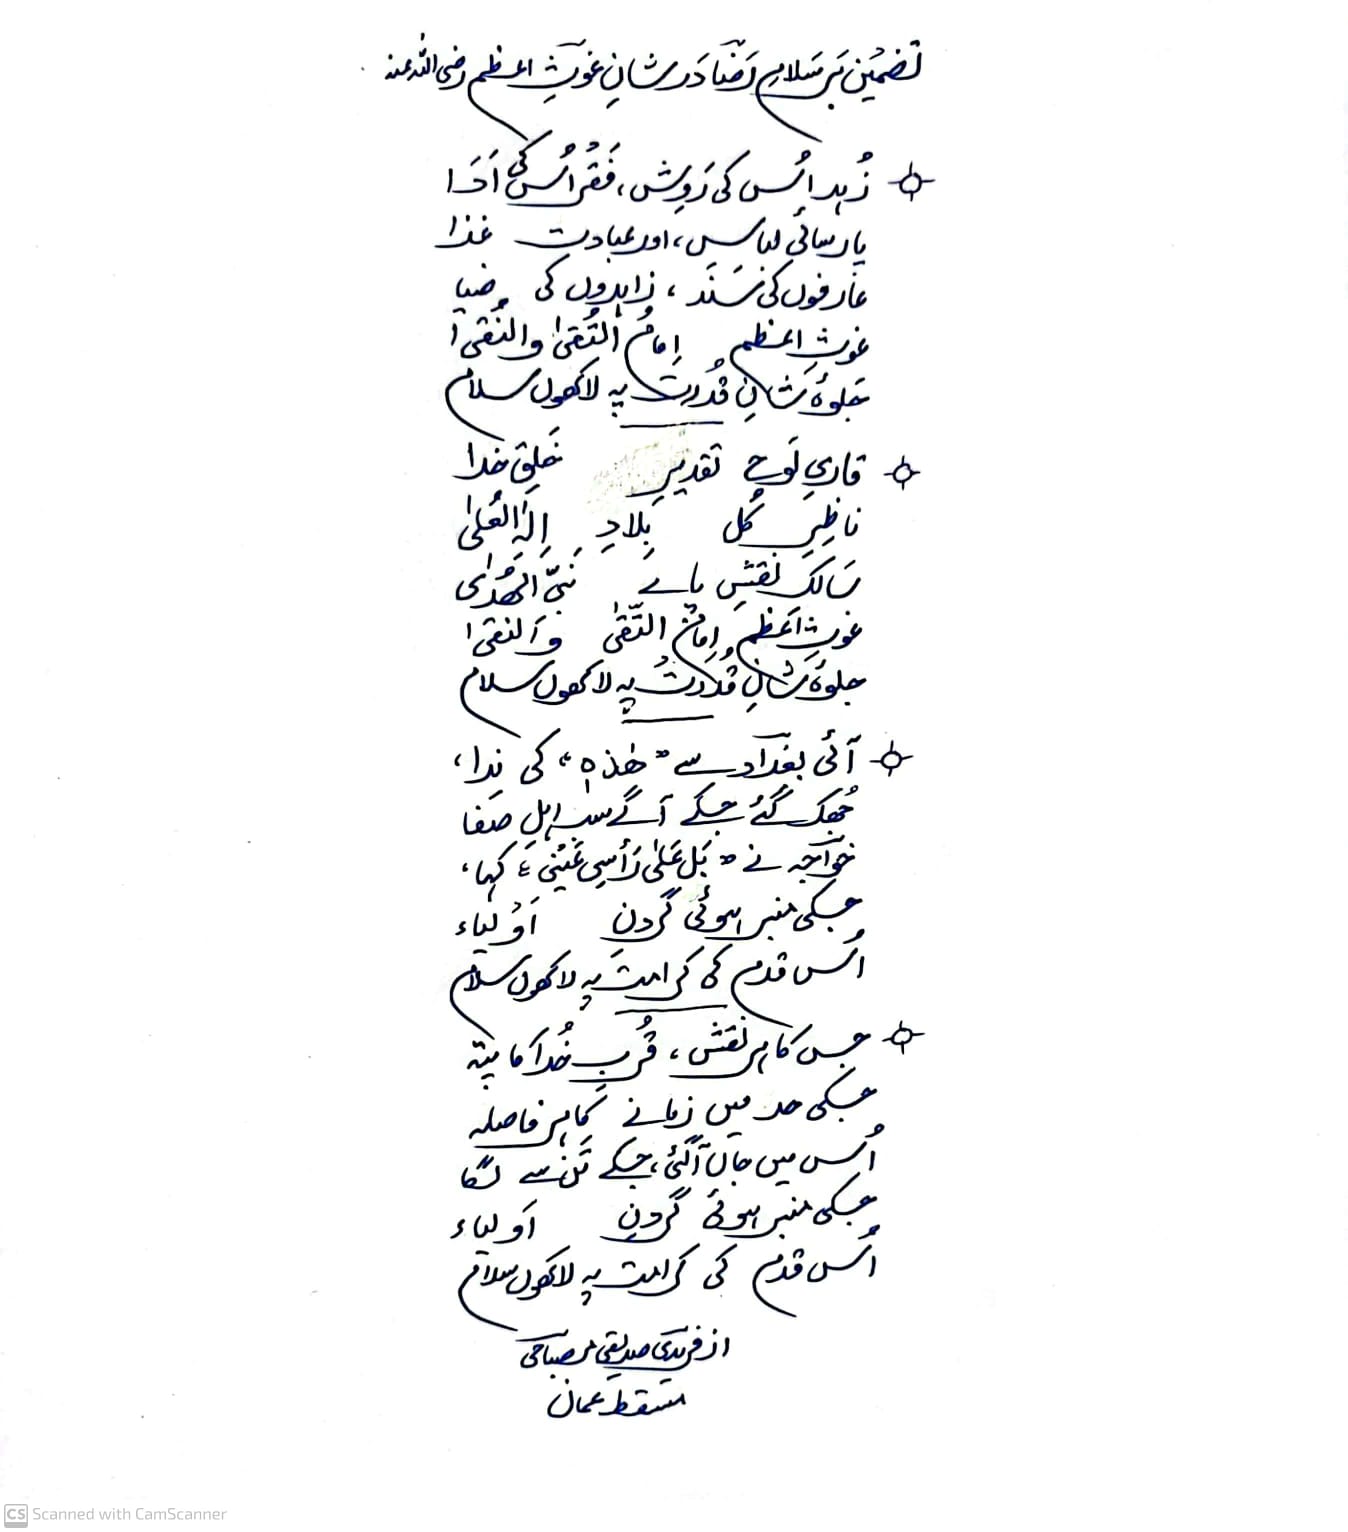 تضمین بَر سَلامِ رَضا دَر شانِ غوثِ اعظم رضی اللہ عنہ
زُہد اُس کی رَوِش، فَقْر اُس کی اَدَا
پارسائی لباس، اور عبادت غذا
عارفوں کی سَنَد، زاہدوں کی ضیا
غوثِ اعظم اِمامُ التُّقیٰ والنُّقیٰ
جَلوۂ شانِ قُدرت پہ لاکھوں سلام
قاریِ لَوحِ تقدیرِ خَلقِ خدا
ناظِرِ کُل بِلادِ اِلٰہُ العُلیٰ
سَالکِ نقشِ پائے نَبیِّ الھُدٰی
غوثِ اَعظم اِمامُ التُّقیٰ وَالنقیٰ
جلوۂ شَانِ قُدرتُ پہ لاکھوں سلام
آئی بغداد سے "ھٰذہٖ" کی نِدا،
جُھک گئے جسکے آگے سب اہلِ صَفا
خواجہ نے "بَل عَلیٰ رَأسِی عَیْنِی" کہا،
جسکی منبر ہوئی گردن اَوْلیاء
اُس قدم کی کرامتَ پہ لاکھوں سلام
جس کا ہر نقش، قُربِ خُدَا کا پتہ
جسکی حد میں زمانے کا ہر فاصلہ
اُس میں جاں آگئی، جسکے تَن سے لگا
جسکی منبر ہوئی گردنِ اَولیاء
اُس قدم کی کرامت پہ لاکھوں سلام
از فریدی صدیقی مصباحی
مسقط عمان
CS Scanned with CamScanner